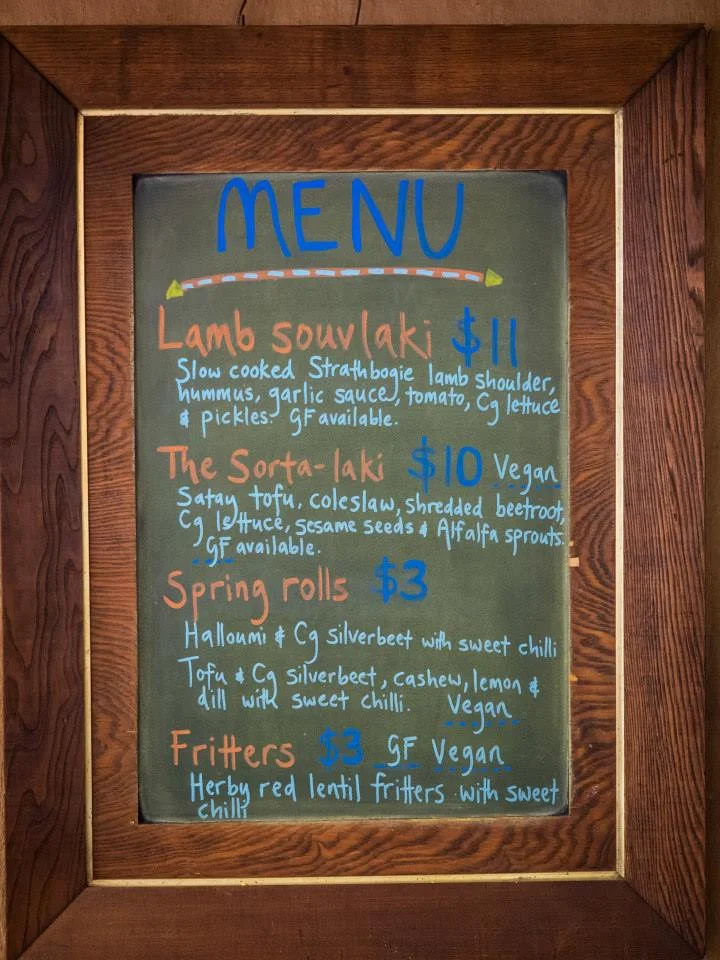 MENU
Lamb souvlaki $11
Slow cooked Strathbogie lamb shoulder,
hummus, garlic sauce, tomato, Cg lettuce
& pickles. GF available.
The Sorta-laki $10 Vegan
Satay tofu, coleslaw, shredded beetroot,
Cg lettuce, sesame seeds & Alfalfa sprouts.
GF available.
Spring rolls $3
Halloumi & Cg silverbeet with sweet chilli
Tofu & Cg silverbeet, cashew, lemon &
dill with sweet chilli. Vegan
Fritters $3 GF Vegan
Herby red lentil fritters with sweet
chilli